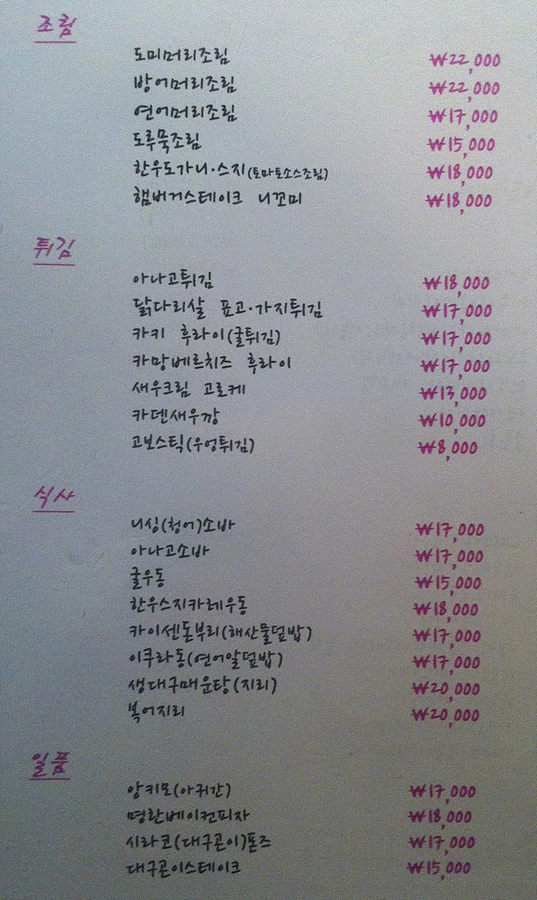 조림
도미머리조림 ₩22,000
방어머리조림 ₩22,000
연어머리조림 ₩17,000
도루묵조림 ₩15,000
한우도가니·스지(토마토소스조림) ₩18,000
햄버거스테이크 니꼬미 ₩18,000
튀김
아나고튀김 ₩18,000
닭다리살 표고·가지튀김 ₩17,000
카키 후라이(굴튀김) ₩17,000
카망베르치즈 후라이 ₩17,000
새우크림 고로케 ₩13,000
카덴새우깡 ₩10,000
고보스틱(우엉튀김) ₩8,000
식사
니싱(청어)소바 ₩17,000
아나고소바 ₩17,000
굴우동 ₩15,000
한우스지카레우동 ₩18,000
카이센돈부리(해산물덮밥) ₩17,000
이쿠라동(연어알덮밥) ₩17,000
생대구매운탕(지리) ₩20,000
복어지리 ₩20,000
일품
앙키모(아귀간) ₩17,000
명란베이컨피자 ₩18,000
시라코(대구곤이)폰즈 ₩17,000
대구곤이스테이크 ₩15,000